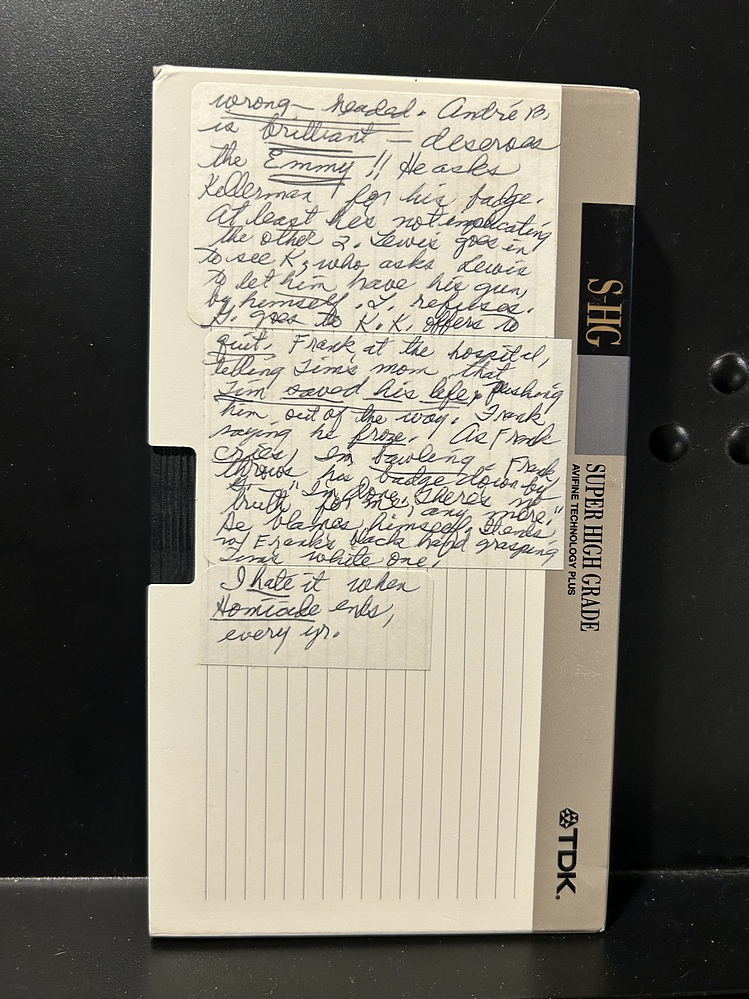 wrong-headed. André B.
is brilliant — deserves
the Emmy!! He asks
Kellerman for his badge.
At least he's not implicating
the other 2. Lewis goes in
to see K, who asks Lewis
to let him have his gun,
by himself. L. refuses.
G. goes to K. K. offers to
quit. Frank, at the hospital,
telling Tim's mom that
Tim saved his life, pushing
him out of the way. Frank
saying he froze. As Frank
cries, I'm bawling. Frank
throws his badge down by
G. "I'm done. There's no
truth for me, any more."
He blames himself. Ends
w/ Frank's black hand grasping
Tim's white one.
I hate it when
Homicide ends,
every yr.
S-HG
SUPER HIGH GRADE
AVIFINE TECHNOLOGY PLUS
TDK.